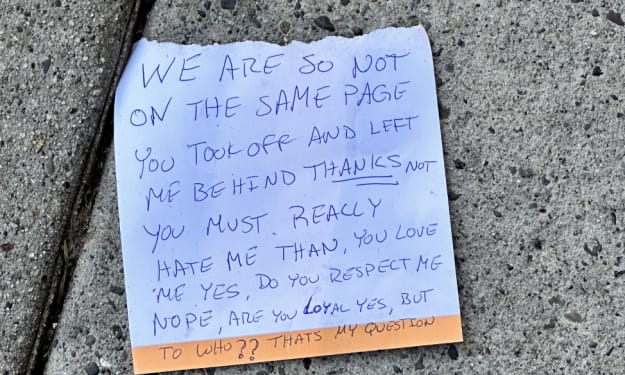 WE ARE SO NOT
ON THE SAME PAGE
YOU TOOK OFF AND LEFT
ME BEHIND THANKS NOT
YOU MUST. REALLY
HATE ME THAN, YOU LOVE
ME YES, DO YOU RESPECT ME
NOPE, ARE YOU LOYAL YES, BUT
TO WHO?? THATS MY QUESTION